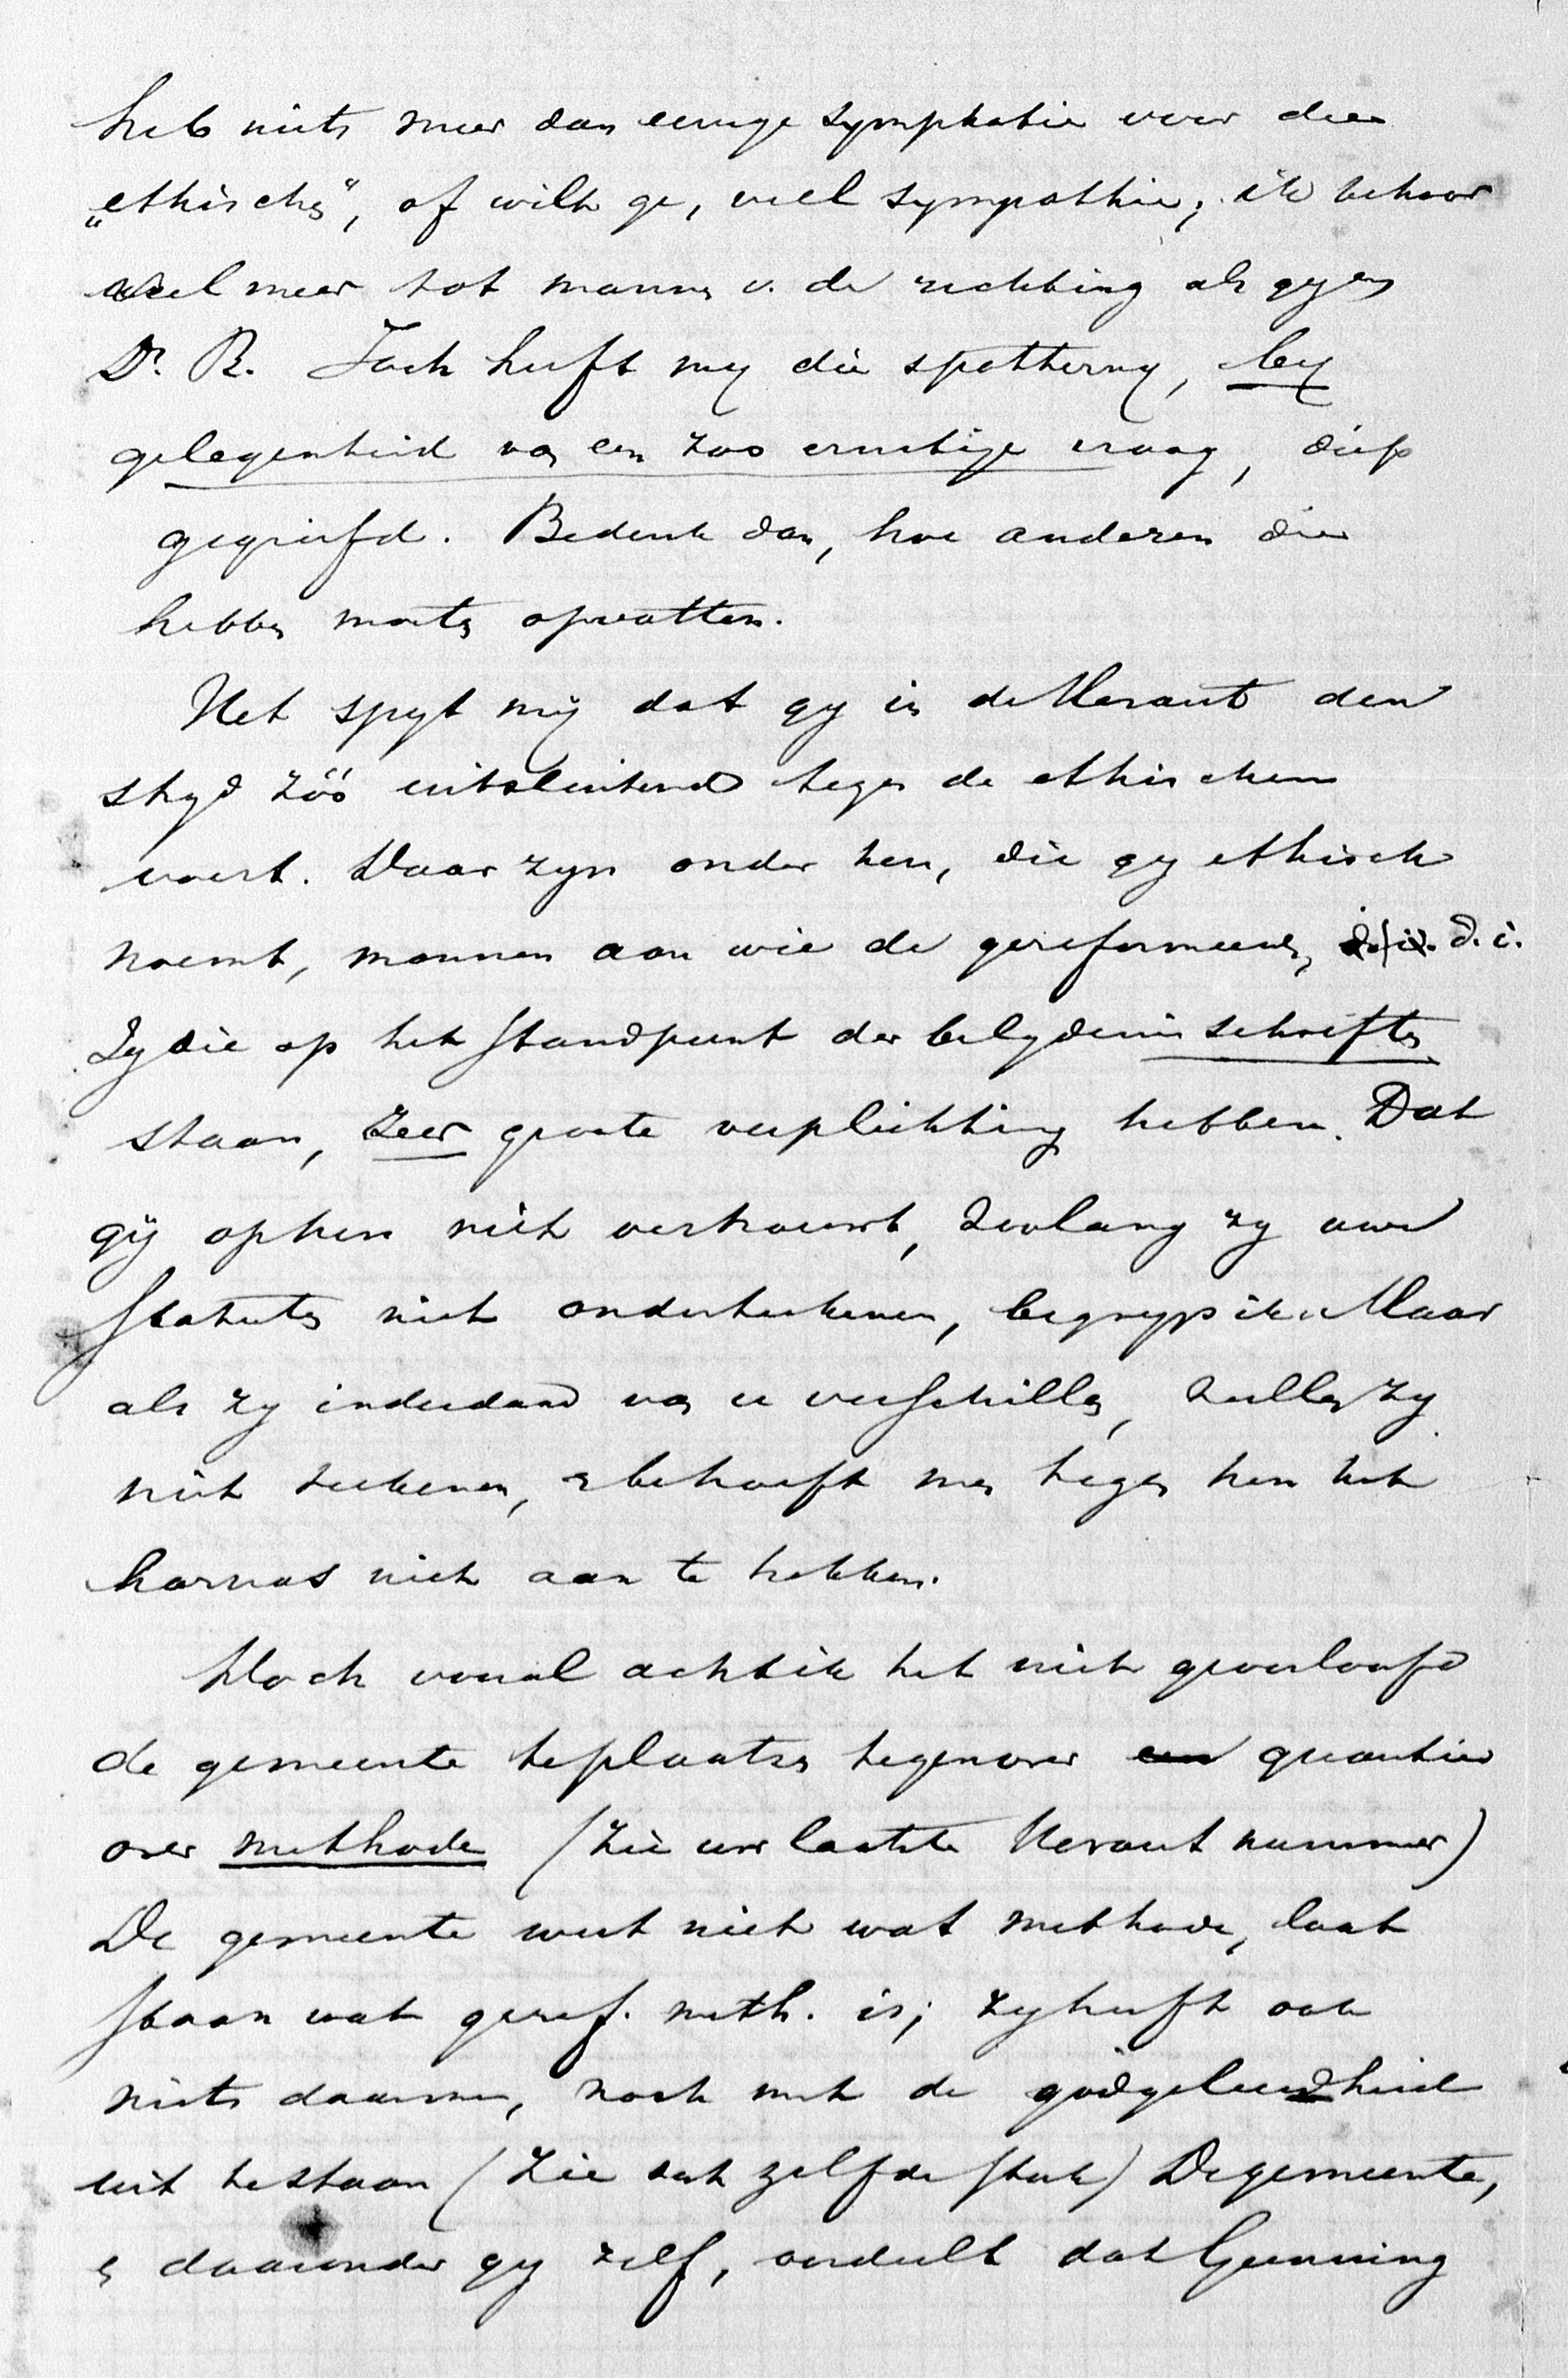 heb niets meer dan eenige symphatie voor deen
„ethische", of wilt ge, veel sympathie; ik behoor
veel meer tot mannen v. de richting als gy en
Dr. R. Toch heeft my die spotterny, by
gelegenheid van een zoo ernstige vraag, diep
gegriefd. Bedenk dan, hoe anderen die
hebben moeten opvatten.
Het spyt mij dat gy in de Heraut den
stryd zóó uitsluitend tegen de ethischen
voert. Daar zyn onder hen, die gy ethisch
noemt, mannen aan wie de gereformeerden, d.i.
Zy die op het standpunt der belydenisschriften
staan, zeer groote verplichting hebben. Dat
gij op hen niet vertrouwt, zoolang zy uwe
Statuten niet onderteekenen, begryp ik. Maar
als zy inderdaad van u verschillen, zullen zy
niet teekenen, en behoeft men tegen hen het
harnas niet aan te trekken.
Noch vooral acht ik het niet geoorloofd
de gemeente te plaatsen tegenover quaestien
over methode (zie uw laatste Heraut nummer)
De gemeente weet niet wat methode, laat
staan wat geref. meth. is; zy heeft ook
niets daarmee, noch met de godgeleerdheid
uit te staan (Zie dat zelfde stuk) De gemeente,
en daaronder gy zelf, oordeelt dat Gunning